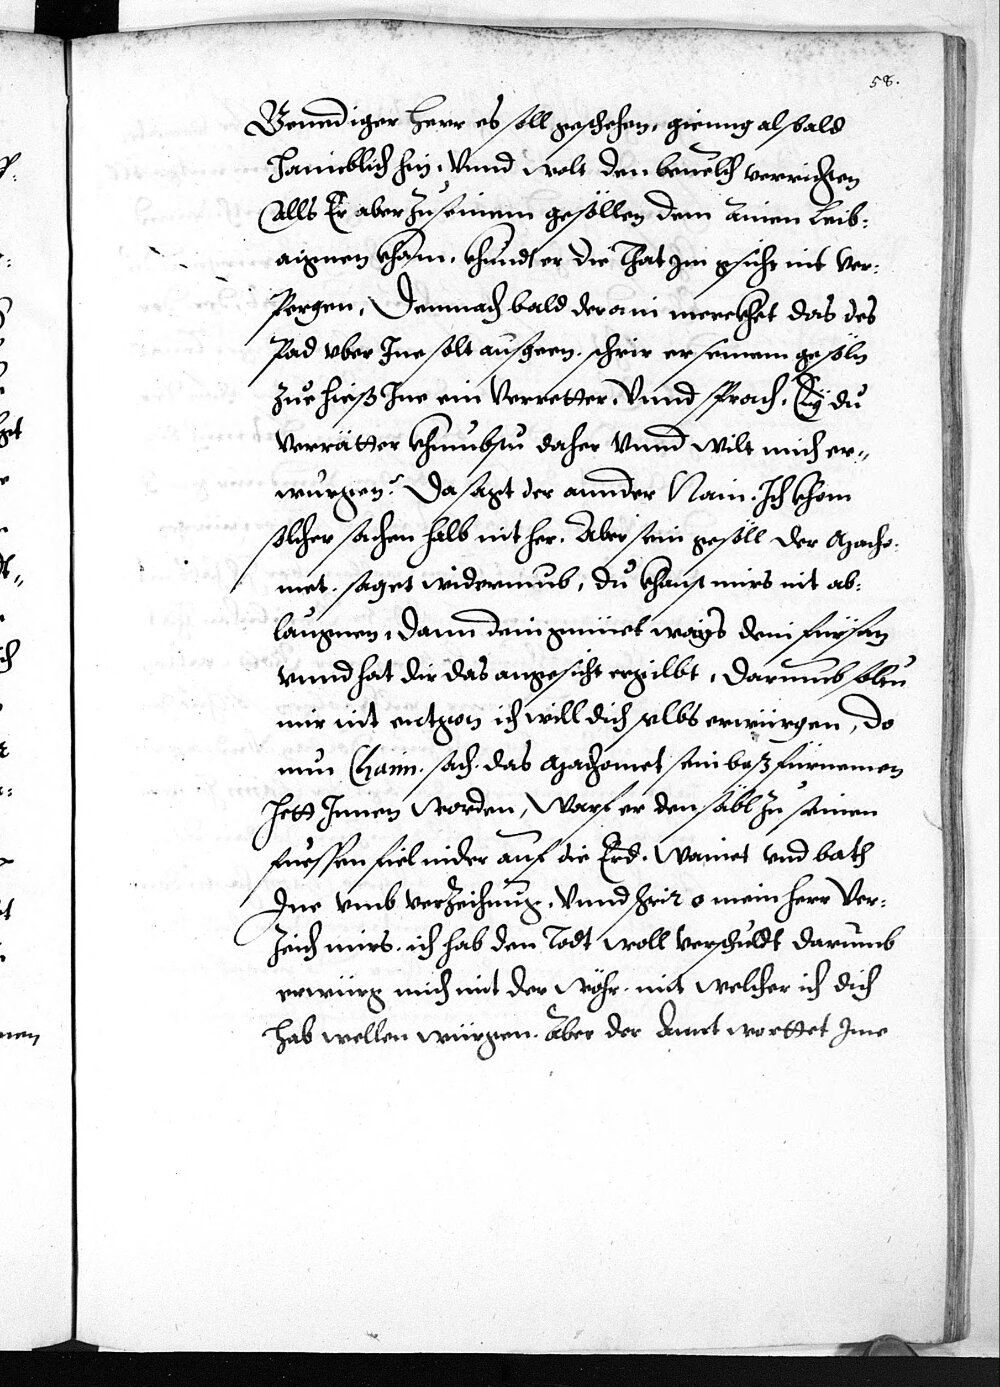 58.
Genediger herr es soll geschehen, gieng alsbald
haimblich hin, Vnnd wolt den beuelch verrichten
Alls Er aber zu seinem gesöllen dem Ainen Leib-
aignen kham, khundt er die That Jm gsicht nit ver-
Pergen, Demnach bald der ain merckhet das des
Pad vber Jne solt ausgeen, schrir er seinem gesöln
zue hieß Jne ein Verretter, Vnnd sprach, Ey du
verrätter khumbstu daher Vnnd wilt mich er-
wurgen? Da sagt der annder Nain, Jch khom
solcher sachen halb nit her, Aber sein gesöll der Macho-
met, saget widerumb, du khanst mirs nit ab-
laugnen, dann dein gmüet wayß dein fürsatz
vnnd hat dir das angesicht ergilbt, Darumb solstu
mir nit entgon ich will dich selbs erwürgen, Do
nun Chain, sach das Machomet sein beß fürnemen
hett Jnnen worden, Warf er den säbl zu seinen
fuessen fiel nider auf die Erd, Wainet vnd bath
Jne vmb verzeihung, Vnnd schrir o mein herr Ver-
zeich mirs, ich hab den Todt woll verschuldt darumb
erwürg mich mit der wöhr, mit welcher ich dich
hab wellen würgen. Aber der Anntworttet Jme